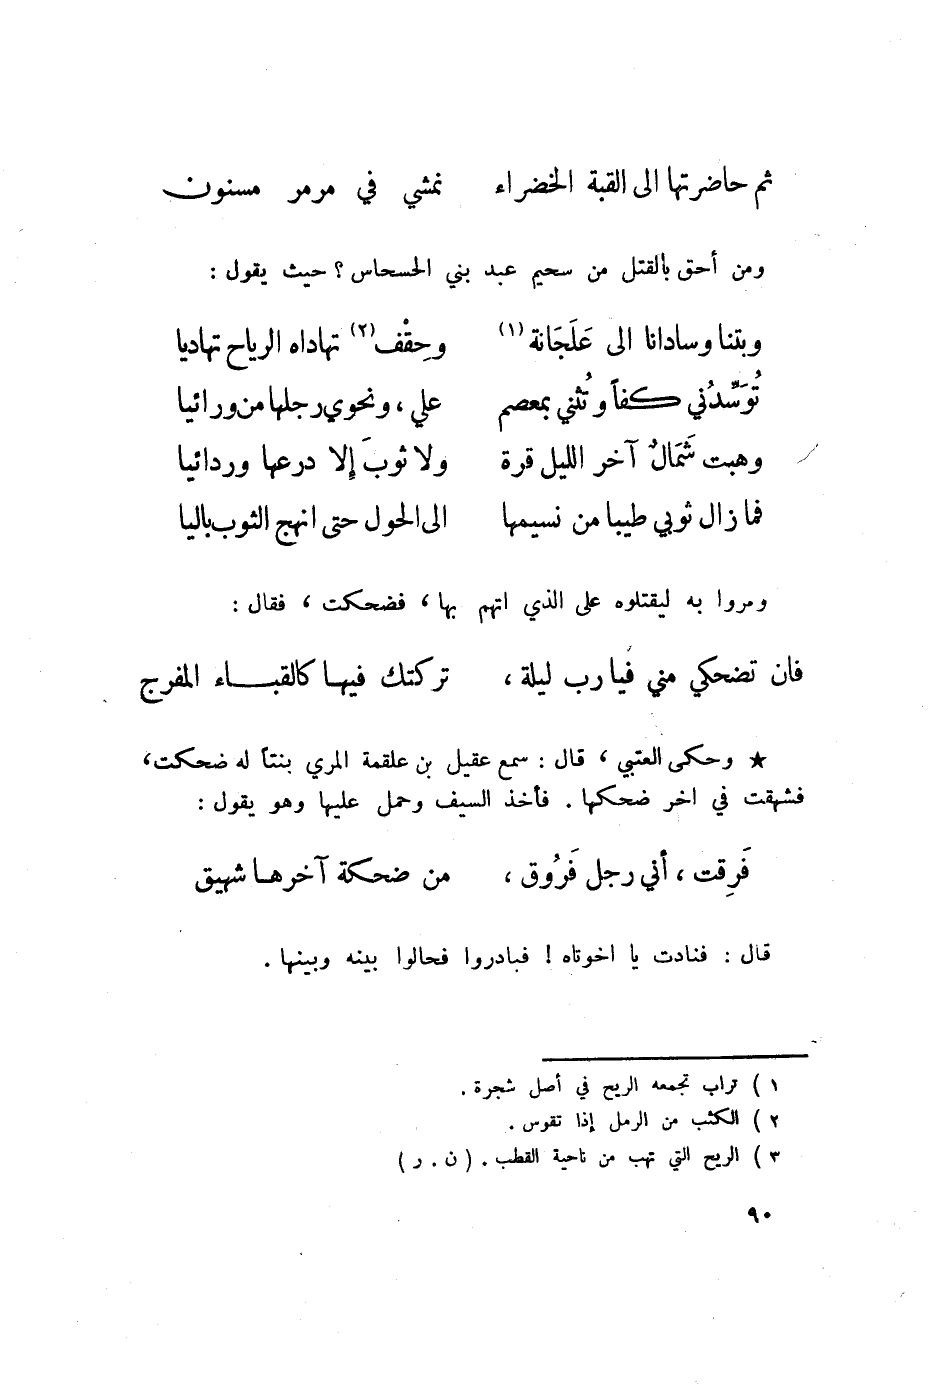 ثم حاضرتها الى القبة الخضراء نمشي في مرمر مسنون
ومن أحق بالقتل من سحيم عبد بني الحسحاس ؟ حيث يقول :
وبتنا وسادانا الى عَلَجَانة (١) وحِقْف (٢) تهاداه الرياح تهاديا
تُوَسِّدُني كفاً وتُثني بمعصم علي ، ونحوي رجلها من ورائيا
وهبت شَمَالٌ آخر الليل قرة ولا ثوبَ إلا درعها وردائيا
فما زال ثوبي طيبا من نسيمها الى الحول حتى انهج الثوب باليا
ومروا به ليقتلوه على الذي اتهم بها ، فضحكت ، فقال :
فان تضحكي مني فيا رب ليلة ، تركتك فيها كالقباء المفرج
★ وحكى العتبي ، قال : سمع عقيل بن علقمة المري بنتاً له ضحكت ،
فشهقت في اخر ضحكها . فأخذ السيف وحمل عليها وهو يقول :
فَرِقت ، أني رجل فَرُوق ، من ضحكة آخرها شهيق
قال : فنادت يا اخوتاه ! فبادروا فحالوا بينه وبينها .
١ ) تراب تجمعه الريح في أصل شجرة .
٢ ) الكثب من الرمل إذا تقوس .
٣ ) الريح التي تهب من ناحية القطب . ( ن . ر )
٩٠